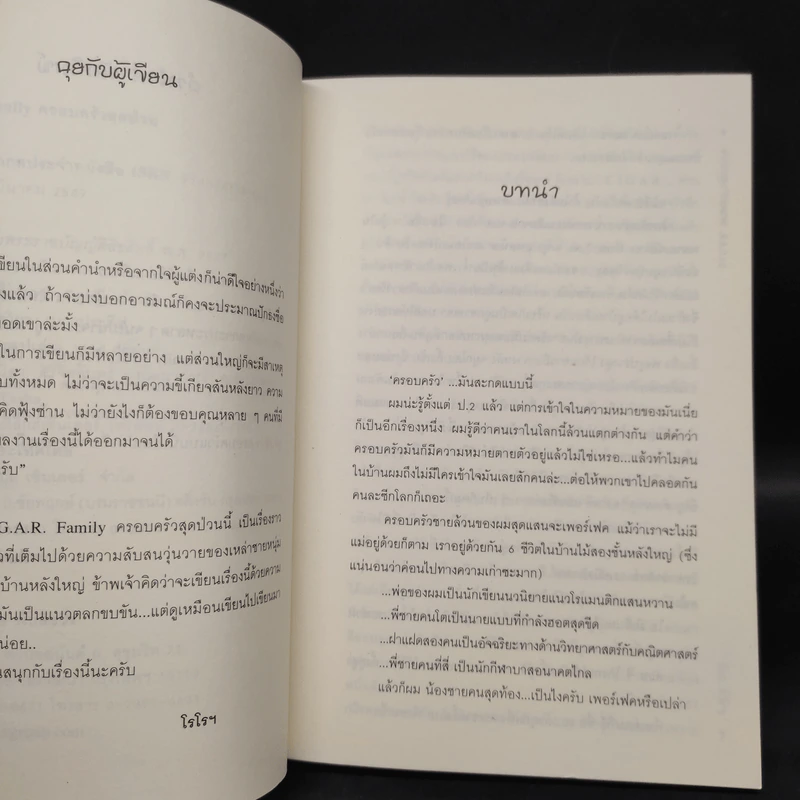 คุยกับผู้เขียน
เขียนในส่วนคำนำหรือจากใจผู้แต่งก็น่าดีใจอย่างหนึ่งว่า
งแล้ว ถ้าจะบ่งบอกอารมณ์ก็คงจะประมาณปักธงชื่อ
อดเขาล่ะมั้ง
ในการเขียนก็มีหลายอย่าง แต่ส่วนใหญ่ก็จะมีสาเหตุ
บทั้งหมด ไม่ว่าจะเป็นความขี้เกียจสันหลังยาว ความ
คิดฟุ้งซ่าน ไม่ว่ายังไงก็ต้องขอบคุณหลาย ๆ คนที่มี
ผลงานเรื่องนี้ได้ออกมาจนได้
รับ”
G.A.R. Family ครอบครัวสุดป่วนนี้ เป็นเรื่องราว
วที่เต็มไปด้วยความสับสนวุ่นวายของเหล่าชายหนุ่ม
บ้านหลังใหญ่ ข้าพเจ้าคิดว่าจะเขียนเรื่องนี้ด้วยความ
มันเป็นแนวตลกขบขัน...แต่ดูเหมือนเขียนไปเขียนมา
น่อย..
นสนุกกับเรื่องนี้นะครับ
โรโรฯ
บทนำ
‘ครอบครัว’ ...มันสะกดแบบนี้
ผมน่ะรู้ตั้งแต่ ป.2 แล้ว แต่การเข้าใจในความหมายของมันเนี่ย
ก็เป็นอีกเรื่องหนึ่ง ผมรู้ดีว่าคนเราในโลกนี้ล้วนแตกต่างกัน แต่คำว่า
ครอบครัวมันก็มีความหมายตายตัวอยู่แล้วไม่ใช่เหรอ...แล้วทำไมคน
ในบ้านผมถึงไม่มีใครเข้าใจมันเลยสักคนล่ะ...ต่อให้พวกเขาไปคลอดกัน
คนละซีกโลกก็เถอะ
ครอบครัวชายล้วนของผมสุดแสนจะเพอร์เฟค แม้ว่าเราจะไม่มี
แม่อยู่ด้วยก็ตาม เราอยู่ด้วยกัน 6 ชีวิตในบ้านไม้สองชั้นหลังใหญ่ (ซึ่ง
แน่นอนว่าค่อนไปทางความเก่าซะมาก)
...พ่อของผมเป็นนักเขียนนวนิยายแนวโรแมนติกแสนหวาน
...พี่ชายคนโตเป็นนายแบบที่กำลังฮอตสุดขีด
...ฝาแฝดสองคนเป็นอัจฉริยะทางด้านวิทยาศาสตร์กับคณิตศาสตร์
...พี่ชายคนที่สี่ เป็นนักกีฬาบาสอนาคตไกล
แล้วก็ผม น้องชายคนสุดท้อง...เป็นไงครับ เพอร์เฟคหรือเปล่า